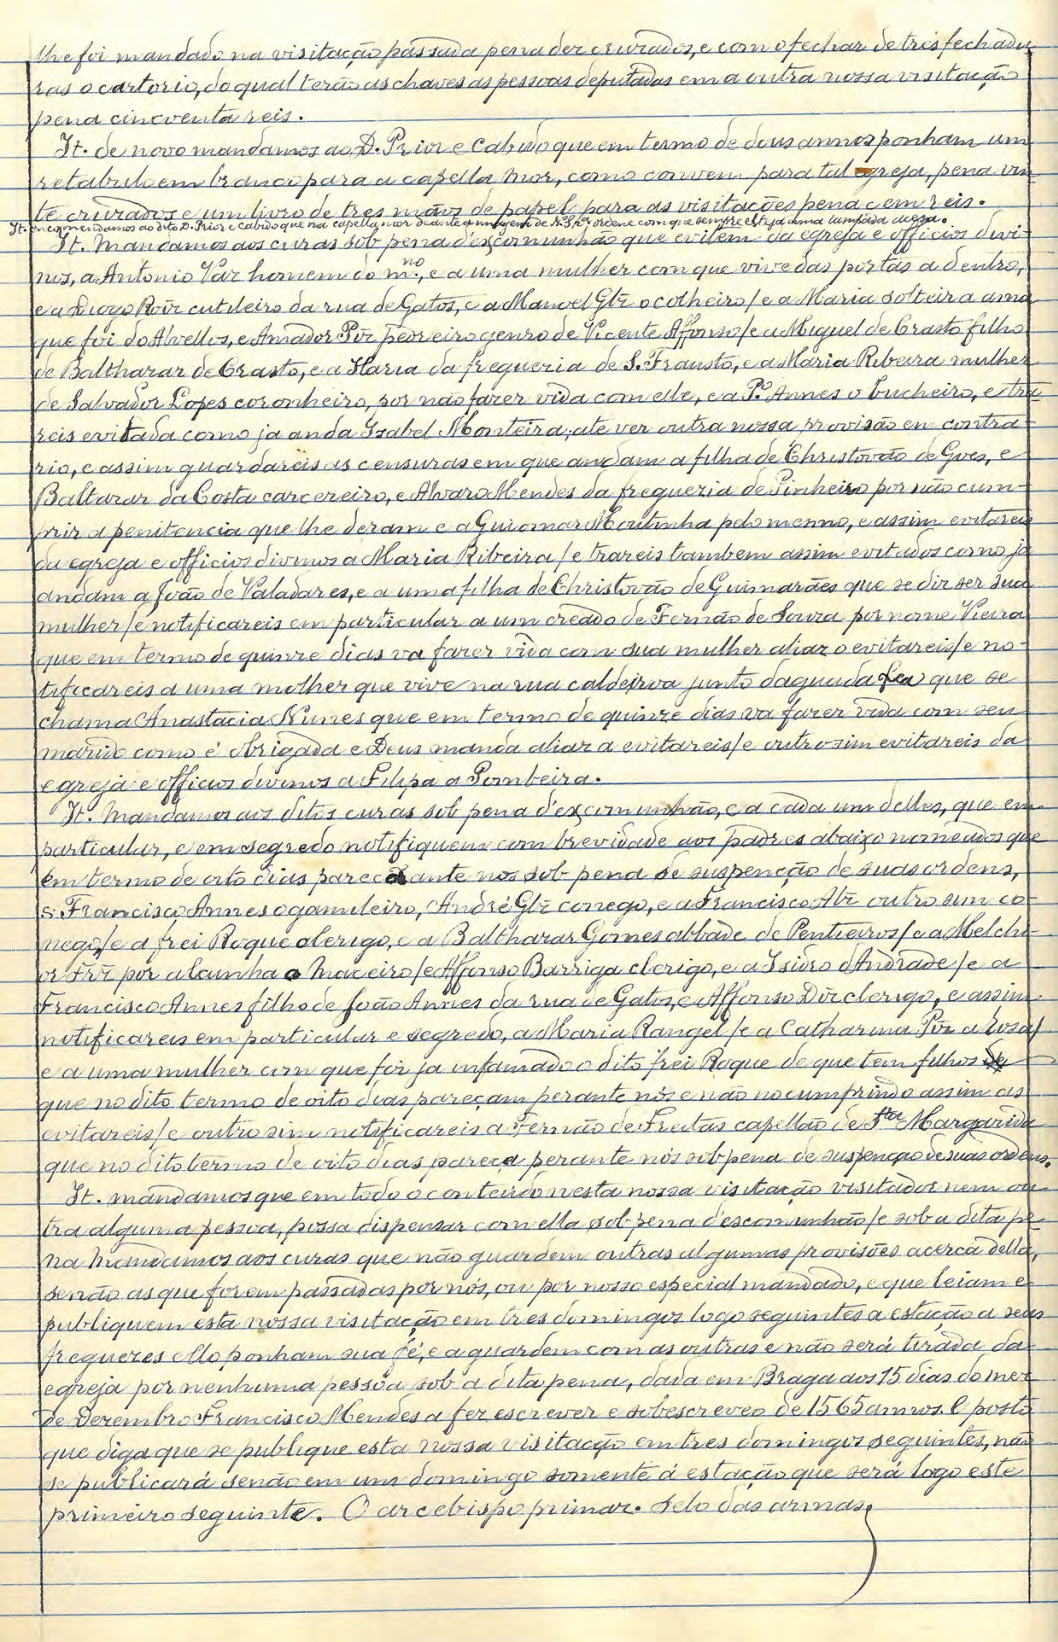 lhe foi mandado na visitação passada pena dez cruzados, e com o fechar de tres fechadu
ras o cartorio, do qual terão as chaves as pessoas deputadas em a outra nossa visitação
pena cincoenta reis.
It. de novo mandamos ao D. Prior e Cabido que em termo de dous annos ponham um
retabulo em branco para a capella mor, como convem para tal egreja, pena vin
te cruzados e um livro de tres mãos de papel para as visitações pena cem reis.
It. encomendamos ao dito D. Prior e cabido que na capella mor deante a imagem de N. Sr.ª ordene com que sempre esteja uma lampada acesa.
It. Mandamos aos curas sob pena d'excomunhão que evitem da egreja e officios divi
nos, a Antonio Vaz homem do m.no, e a uma mulher com que vive das portas a dentro,
e a Diogo Roiz cutileiro da rua de Gatos, e a Manoel Glz o colheiro/e a Maria solteira ama
que foi do Alvellos, e Amador Piz pedreiro genro de Vicente Affonso/e a Miguel de Crasto filho
de Balthazar de Crasto, e a Maria da freguezia de S. Frausto, e a Maria Ribeira mulher
de Salvador Lopes coronheiro, por não fazer vida com elle, e a P.º Annes o Tucheiro, e tra
reis evitada como ja anda Izabel Monteira, ate ver outra nossa provisão em contra
rio, e assim guardareis as censuras em que andam a filha de Christovão de Goes, e
Baltazar da Costa carcereiro, e Alvaro Mendes da freguezia de Pinheiro por não cum-
prir a penitencia que lhe deram e a Guiomar Moutinha pelo mesmo, e assim evitareis
da egreja e officios divinos a Maria Ribeira/e trareis tambem assim evitados como ja
andam a João de Valadares, e a uma filha de Christovão de Guimarães que se diz ser sua
mulher/e notificareis em particular a um creado de Fernão de Souza por nome Vieira
que em termo de quinze dias va fazer vida com sua mulher aliaz o evitareis/e no-
tificareis a uma molher que vive na rua caldeirôa junto da que se
chama Anastacia Nunes que em termo de quinze dias va fazer vida com seu
marido como é obrigada e Deus manda aliaz a evitareis/e outrosim evitareis da
egreja e officios divinos a Filipa a Pombeira.
It. Mandamos aos ditos curas sob pena d'excomunhão, e a cada um delles, que em
particular, e em segredo notifiquem com brevidade aos padres abaixo nomeados que
em termo de oito dias pareçam ante nos sob pena de suspenção de suas ordens,
s. Francisco Annes o gamileiro, André Glz conego, e a Francisco Alz outro sim co
nego/e a frei Roque clerigo, e a Balthazar Gomes abbade de Pentieiros/e a Melchi-
or Frz por alcunha o Maceiro/e Affonso Barriga clerigo, e a Isidro d'Andrade/e a
Francisco Annes filho de João Annes da rua de Gatos, e Affonso Diz clerigo, e assim
notificareis em particular e segredo, a Maria Rangel/e a Catharina Piz a Roza/
e a uma mulher com que foi ja infamado o dito frei Roque de que tem filhos
que no dito termo de oito dias pareçam perante nós e não no cumprindo assim as
evitareis/e outro sim notificareis a Fernão de Freitas capellão de Sta Margarida
que no dito termo de oito dias pareça perante nós sob pena de suspenção de suas ordens.
It. mandamos que em todo o conteúdo nesta nossa visitação visitador nem ou
tra alguma pessoa, possa dispensar com ella sob pena d'escomunhão/e sob a dita pe-
na mandamos aos curas que não guardem outras algumas provisões acerca della,
senão as que forem passadas por nós, ou por nosso especial mandado, e que leiam e
publiquem esta nossa visitação em tres domingos logo seguintes a estação a seus
freguezes e llo ponham sua fé, e a guardem com as outras e não será tirada da
egreja por nenhuma pessoa sob a dita pena, dada em Braga aos 15 dias do mez
de Dezembro Francisco Mendes a fez escrever e sobescreveo de 1565 annos. E posto
que diga que se publique esta nossa visitação em tres domingos seguintes, não
se publicará senão em um domingo somente á estação que será logo este
primeiro seguinte. O arcebispo primaz. Selo das armas